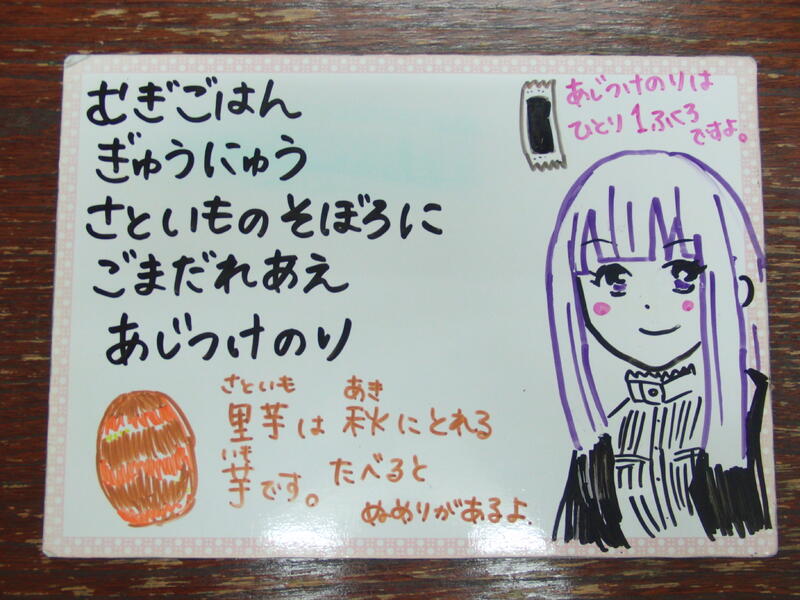 むぎごはん
ぎゅうにゅう
さといものそぼろに
ごまだれあえ
あじつけのり
あじつけのりは
ひとり1ふくろ
ですよ。
さといも あき
里芋は秋にとれる
いも
芋です。たべると
ぬめりがあるよ.